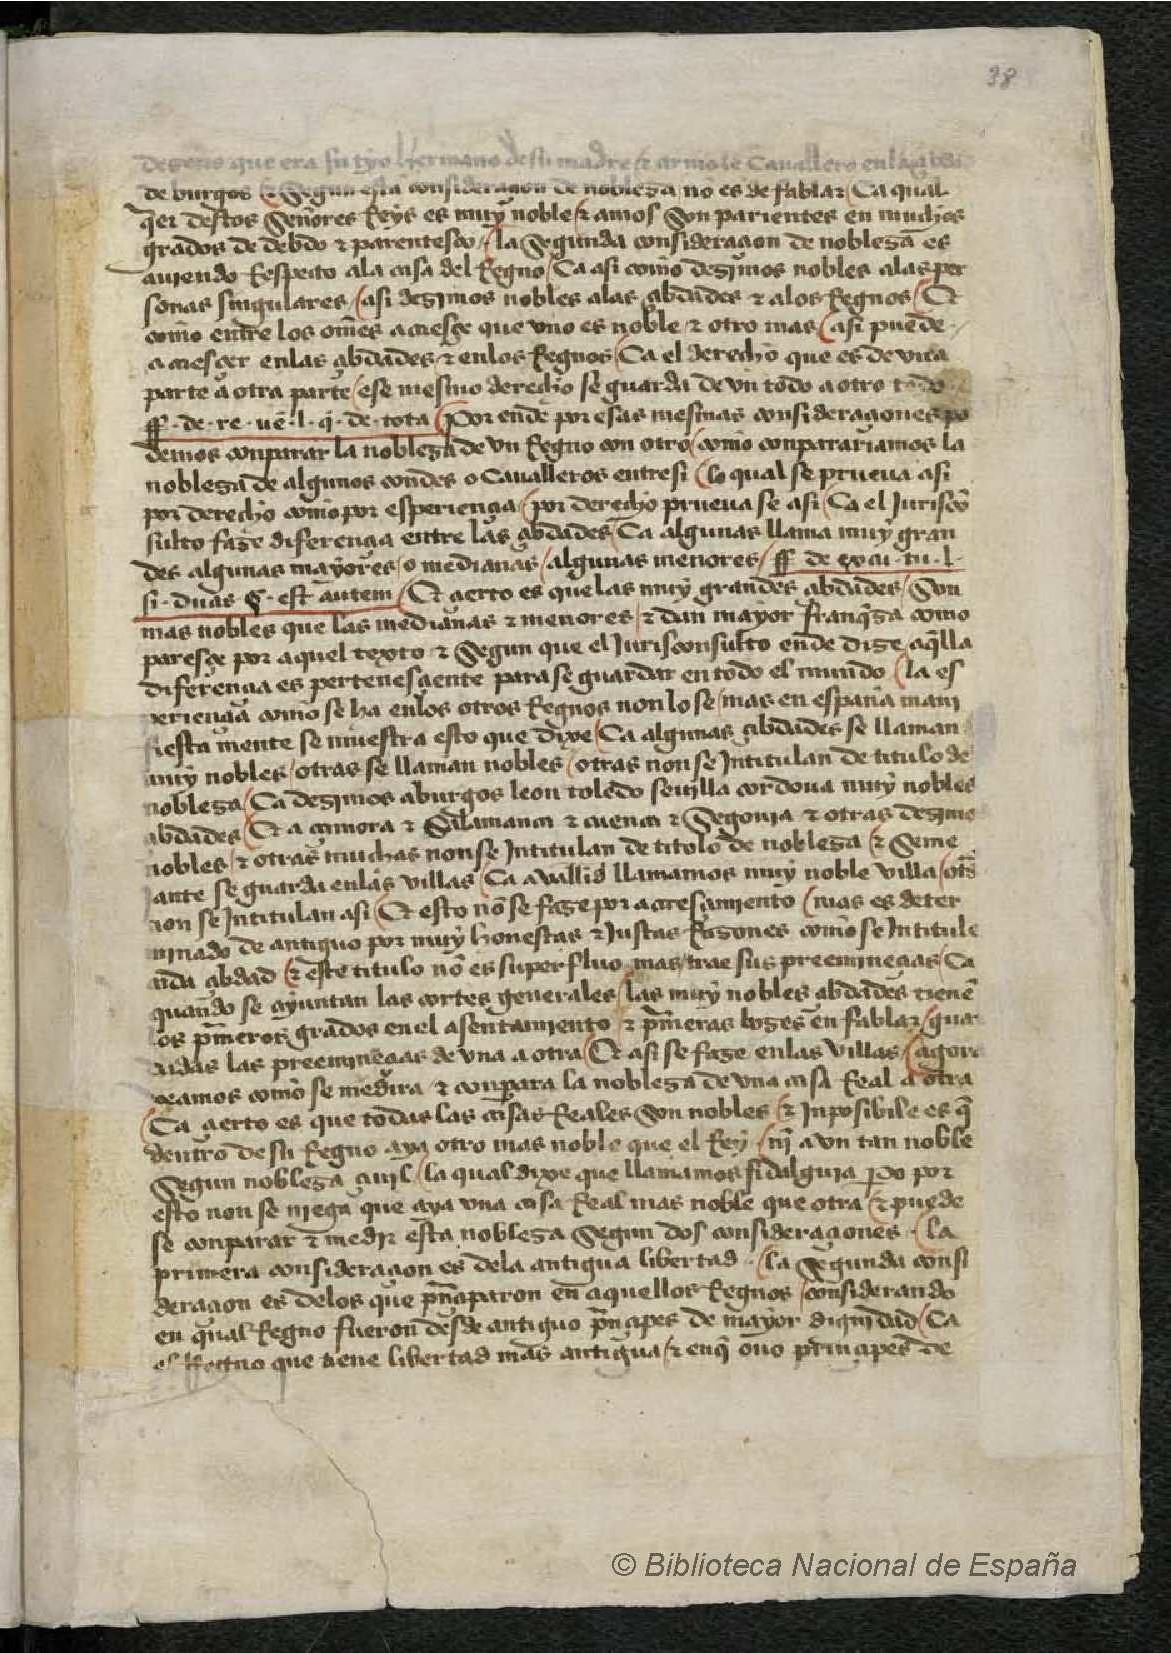 38
dezimos que era su tyo hermano de su madre & armole Cauallero en la çibdad
de burgos & Segun esta consideraçion de nobleza no es de fablar Ca qual
q̄er destos Señores Reys es muy noble & amos son parientes en muchos
grados de debdo & parentesco la Segunda consideraçion de nobleza es
auiendo Respecto ala casa del Regno Ca asi como dezimos nobles alas per
sonas singulares asi dezimos nobles alas çibdades & alos Regnos Et
como entre los om̄es acaesçe que vno es noble & otro mas asi puede
acaesçer enlas çibdades & enlos Regnos Ca el derecho que es de vna
parte a otra parte ese mesmo derecho se guarda de vn todo a otro todo
ff. de. re. ue. l. q̄. de. tota Por ende por esas mesmas consideraçiones po
demos conparar la nobleza de vn Regno con otro como conparariamos la
nobleza de algunos condes o Caualleros entresi lo qual se prueua asi
por derecho como por esperiençia por derecho prueua se asi Ca el Juriscō
sulto faze diferençia entre las çibdades Ca algunas llama muy gran
des algunas mayores o medianas algunas menores ff de excu. tu. l.
si. duas §. est autem Et çierto es que las muy grandes çibdades Son
mas nobles que las medianas & menores & dan mayor franq̄za como
paresçe por aquel texto & Segun que el Jurisconsulto ende dize aq̄lla
diferençia es pertenesçiente para se guardar en todo el mundo la es
periençia como se ha enlos otros Regnos non lo se mas en españa mani
fiesta mente se muestra esto que dixe Ca algunas çibdades se llaman
muy nobles otras se llaman nobles otras non se Intitulan de titulo de
nobleza Ca dezimos a burgos leon toledo seuilla cordoua muy nobles
çibdades Et a çamora & Salamanca & cuenca & Segouia & otras dezimos
nobles & otras muchas non se Intitulan de titolo de nobleza & Seme
jante se guarda enlas villas Ca a vallid llamamos muy noble villa otrās
non se Intitulan asi Et esto nō se faze por acresçamiento mas es deter
minado de antiguo por muy honestas & Justas Razones como se Intitule
cada çibdad & este titulo nō es superfluo mas trae sus preeminēçias Ca
quando se ayuntan las cortes generales las muy nobles çibdades tienē
los p̄meros grados en el asentamiento & p̄meras bozes en fablar guar
dadas las preeminēçias de vna a otra Et asi se faze enlas villas agora
veamos como se medira & conpara la nobleza de vna casa Real a otra
Ca çierto es que todas las casas Reales son nobles & Inposibile es q̄
dentro de su Regno aya otro mas noble que el Rey nj̄ a vn tan noble
Segun nobleza çiuil la qual dixe que llamamos fidalguia ꝑo por
esto non se niega que aya vna casa Real mas noble que otra & puede
se conparar & medir esta nobleza Segun dos consideraçiones la
primera consideraçion es dela antigua libertad la Segunda consi
deraçion es delos que prinçiparon en aquellos Regnos considerando
en qual Regno fueron desde antiguo p̄nçipes de mayor dignidad Ca
el Regno que tiene libertad mas antigua & enq̄ ouo prinçipes de
© Biblioteca Nacional de España